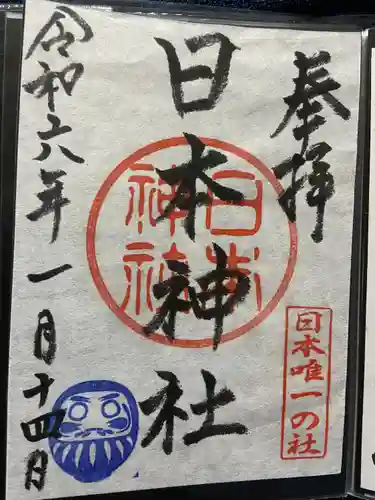 奉拝
日本神社
日本神社
日本唯一の社
令和六年一月十四日